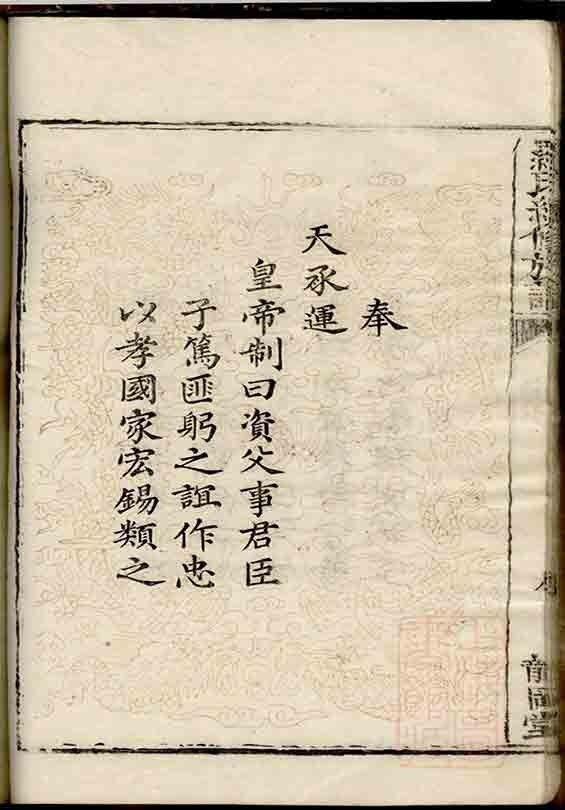 奉
天承運
皇帝制曰資父事君臣
子篤匪躬之誼作忠
以孝國家宏錫類之